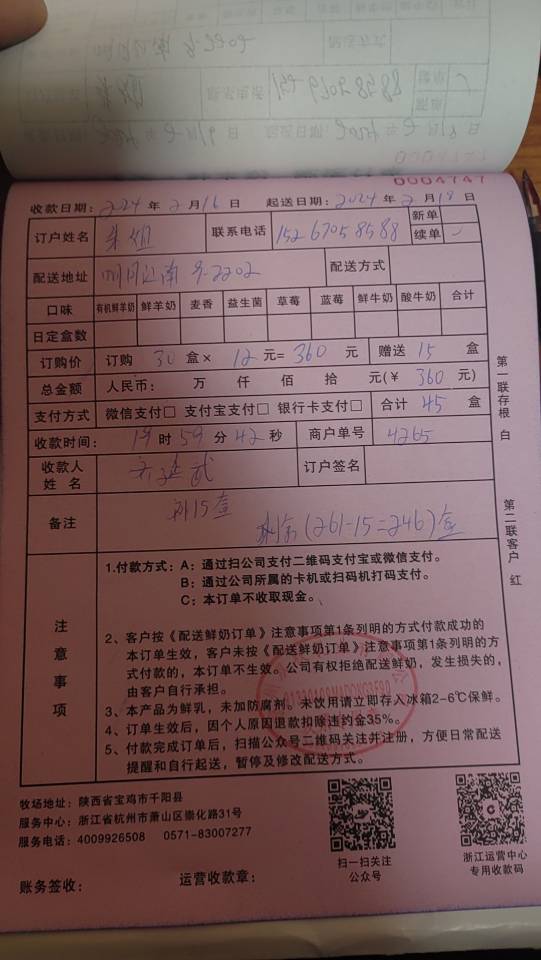 0004747
收款日期: 2024 年 2 月 16 日 起送日期: 2024 年 2 月 19 日
订户姓名 朱姐 联系电话 152 6705 8588 新单
续单 ✓
配送地址 2202 配送方式
口味 有机鲜羊奶 鲜羊奶 麦香 益生菌 草莓 蓝莓 鲜牛奶 酸牛奶 合计
日定盒数
订购价 订购 30 盒× 12 元= 360 元 赠送 15 盒
总金额 人民币: 万 仟 佰 拾 元(¥ 360 元)
支付方式 微信支付□ 支付宝支付□ 银行卡支付□ 合计 45 盒
收款时间: 19 时 59 分 42 秒 商户单号 4265
收款人
姓 名
订户签名
备注 15盒
剩余(261-15=246)盒
注意事项
1.付款方式: A: 通过扫公司支付二维码支付宝或微信支付。
B: 通过公司所属的卡机或扫码机打码支付。
C: 本订单不收取现金。
2、客户按《配送鲜奶订单》注意事项第1条列明的方式付款成功的
本订单生效，客户未按《配送鲜奶订单》注意事项第1条列明的方
式付款的，本订单不生效。公司有权拒绝配送鲜奶，发生损失的，
由客户自行承担。
3、本产品为鲜乳，未加防腐剂。未饮用请立即存入冰箱2-6℃保鲜。
4、订单生效后，因个人原因退款扣除违约金35%。
5、付款完成订单后，扫描公众号二维码关注并注册，方便日常配送
提醒和自行起送，暂停及修改配送方式。
第一联存根 白
第二联客户 红
牧场地址: 陕西省宝鸡市千阳县
服务中心: 浙江省杭州市萧山区崇化路31号
服务电话: 4009926508 0571-83007277
扫一扫关注
公众号
浙江运营中心
专用收款码
账务签收: 运营收款章: